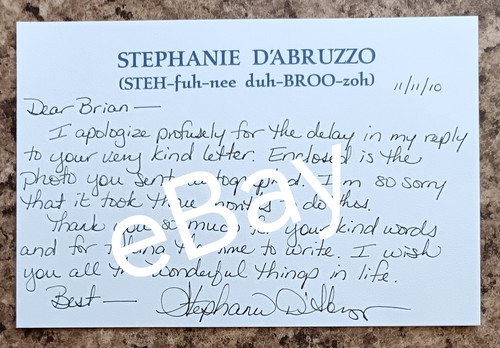 STEPHANIE D'ABRUZZO
(STEH-fuh-nee duh-BROO-zoh)
11/11/10
Dear Brian—
I apologize profusely for the delay in my reply
to your very kind letter. Enclosed is the
photo you sent autographed. I'm so sorry
that it took three months to do this.
Thank you so much for your kind words
and for taking the time to write. I wish
you all the wonderful things in life.
Best— Stephanie D'Abruzzo
eBay